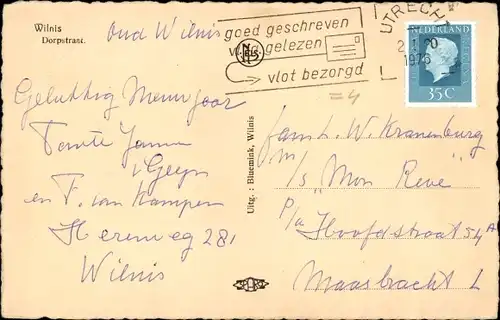 Wilnis
Dorpstraat.
Oud Wilnis
goed geschreven
vlug gelezen
vlot bezorgd
UTRECHT
1976
NEDERLAND
35C
=4
Geluttig Nieuwjaar
Tante Jannie
v Geyn
en F. van Kampen
Herenweg 281
Wilnis
Uitg.: Bluemink, Wilnis
fam L. W. Kranenburg
m/s "Mon Reve"
P/a Hoofdstraat 54A
Maasbracht L